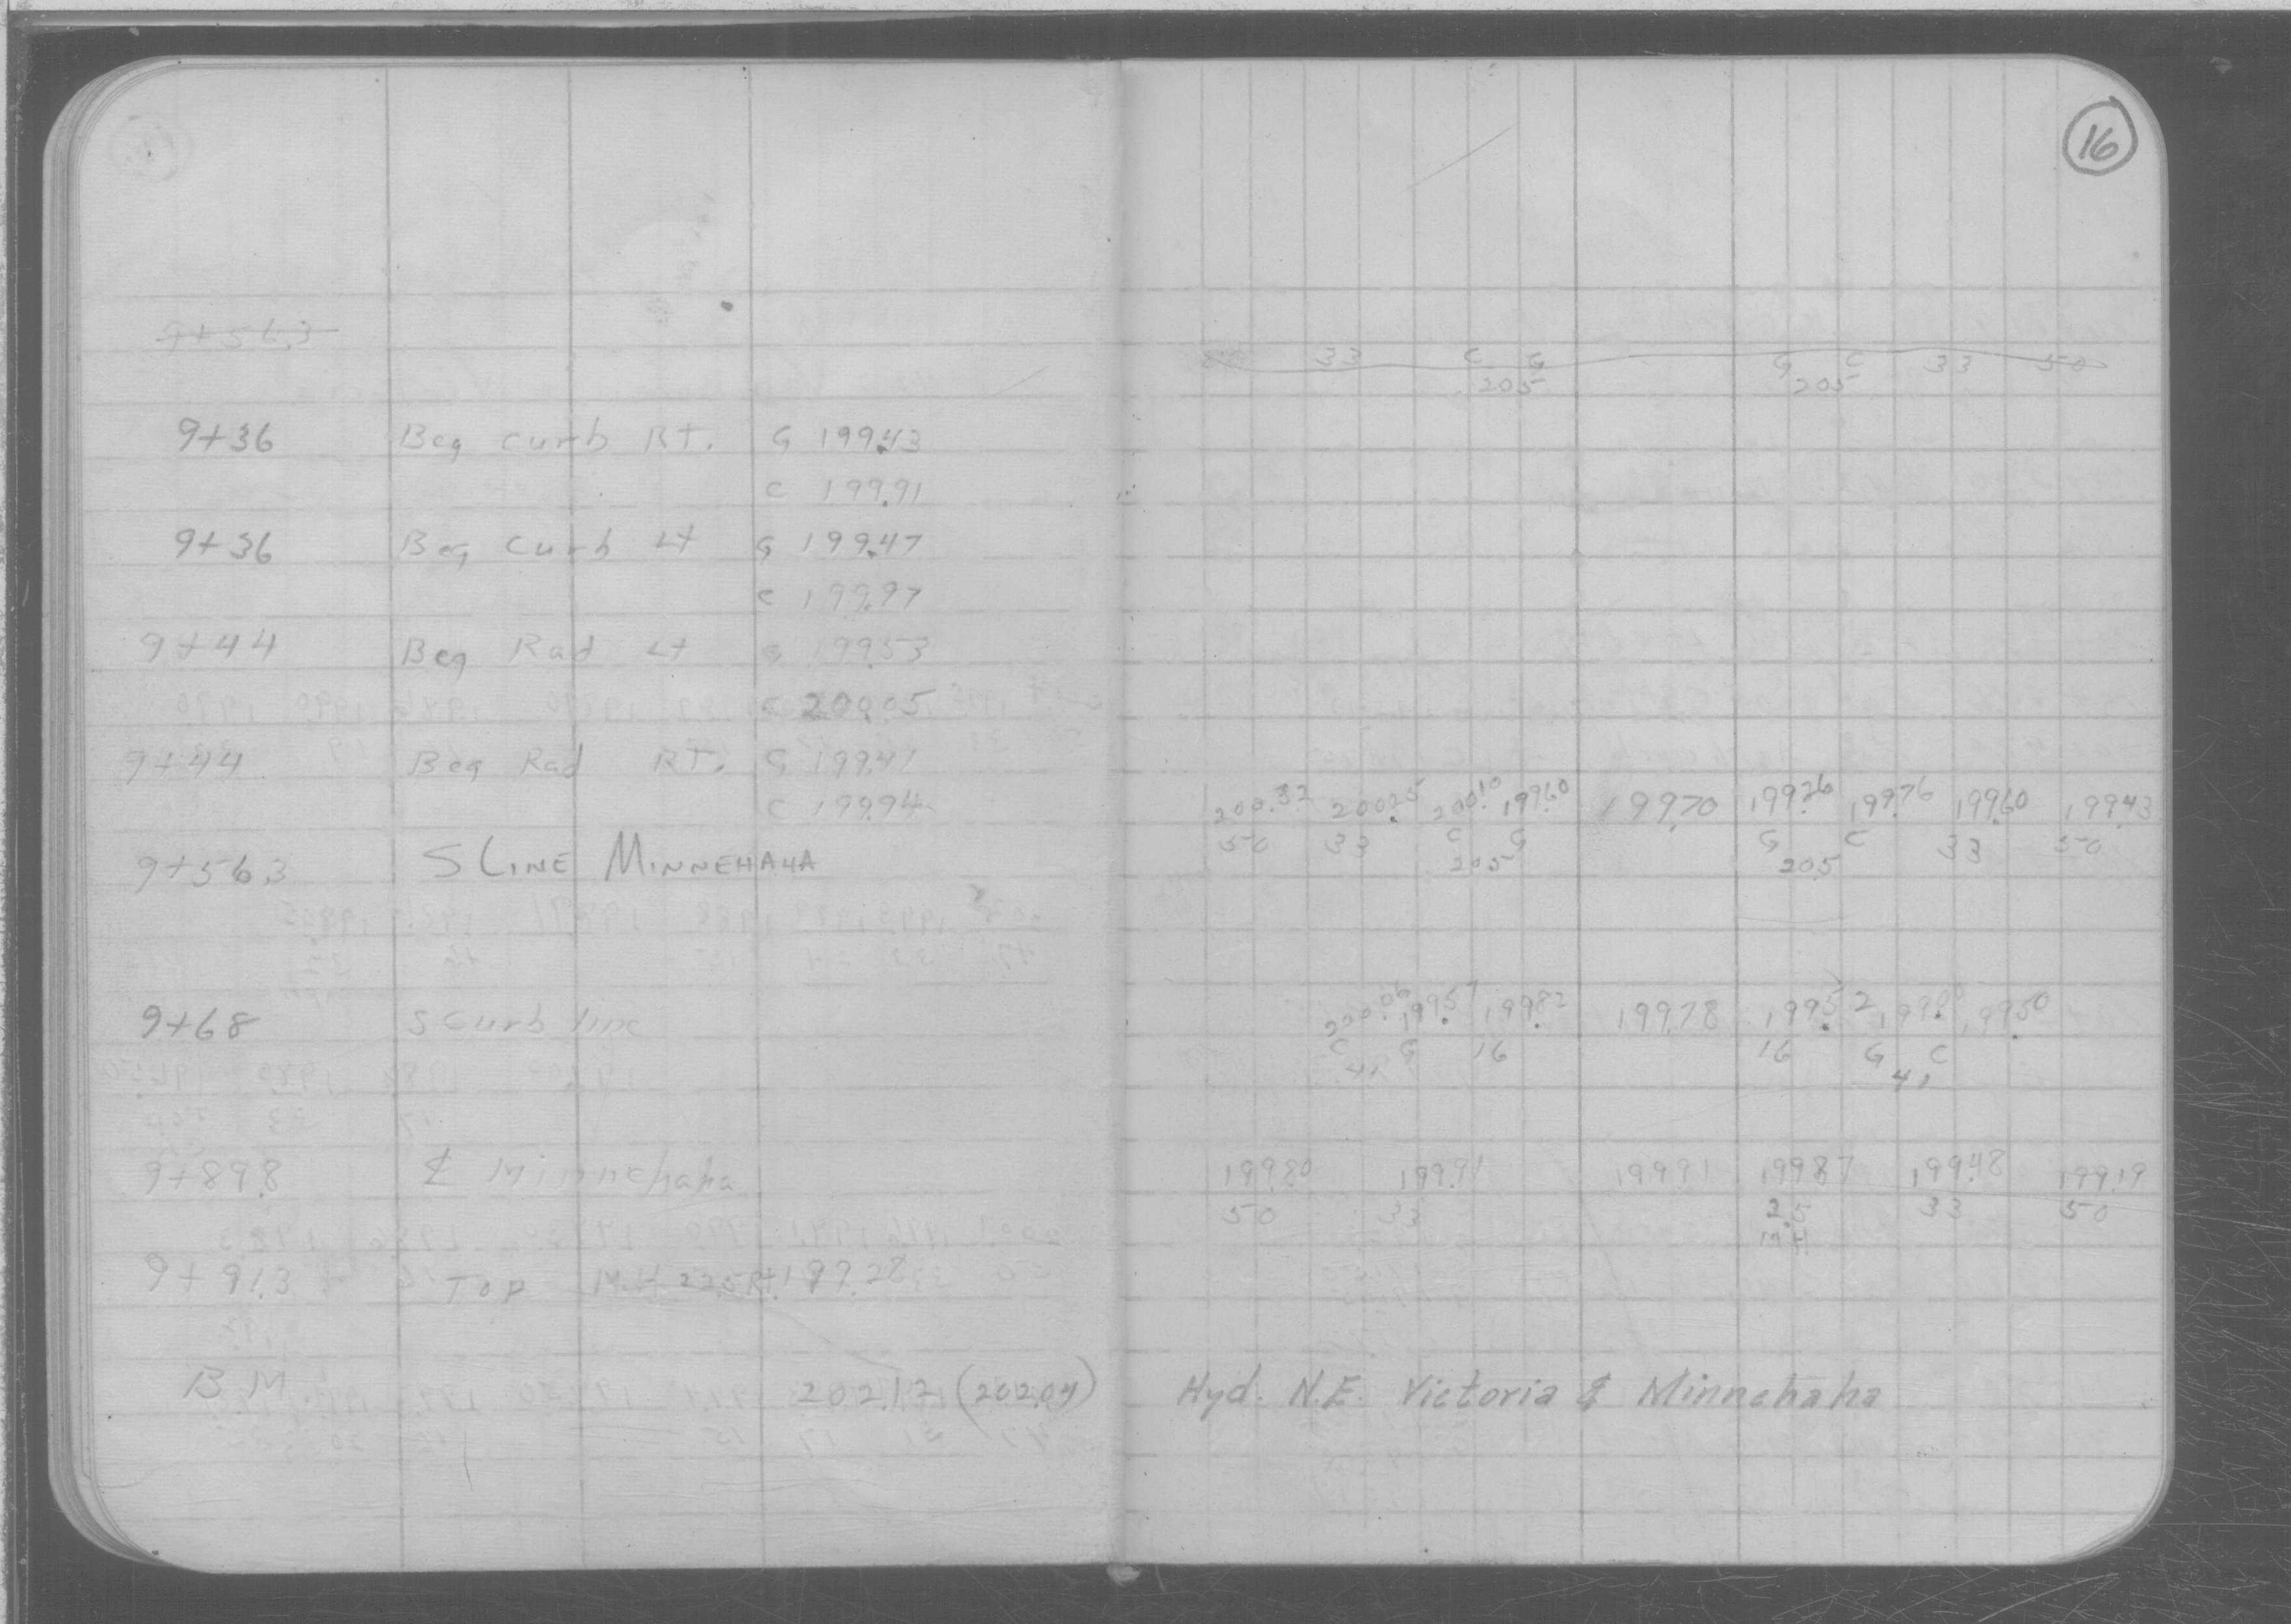 16
9+56.3
33 C G G C 33 50
20.5 20.5
9+36 Beg curb RT. G 199.43
C 199.91
9+36 Beg Curb Lt G 199.47
C 199.97
9+44 Beg Rad Lt G 199.53
C 200.05
9+44 Beg Rad RT. G 199.41
C 199.94
200.32 200.25 200.10 199.60 199.70 199.26 199.76 199.60 199.43
9+56.3 S LINE MINNEHAHA 50 33 C G G C 33 50
20.5 20.5
9+68 S Curb line 200.06 199.57 199.82 199.78 199.52 199.50
C G 16 16 G C
41 41
9+89.8 ℄ Minnehaha 199.80 199.91 199.91 199.87 199.48 199.19
50 33 2.5 33 50
M.H.
9+91.3 Top M.H 22.5 Rt. 199.28
B M 202.12 (202.04) Hyd. N.E. Victoria & Minnehaha